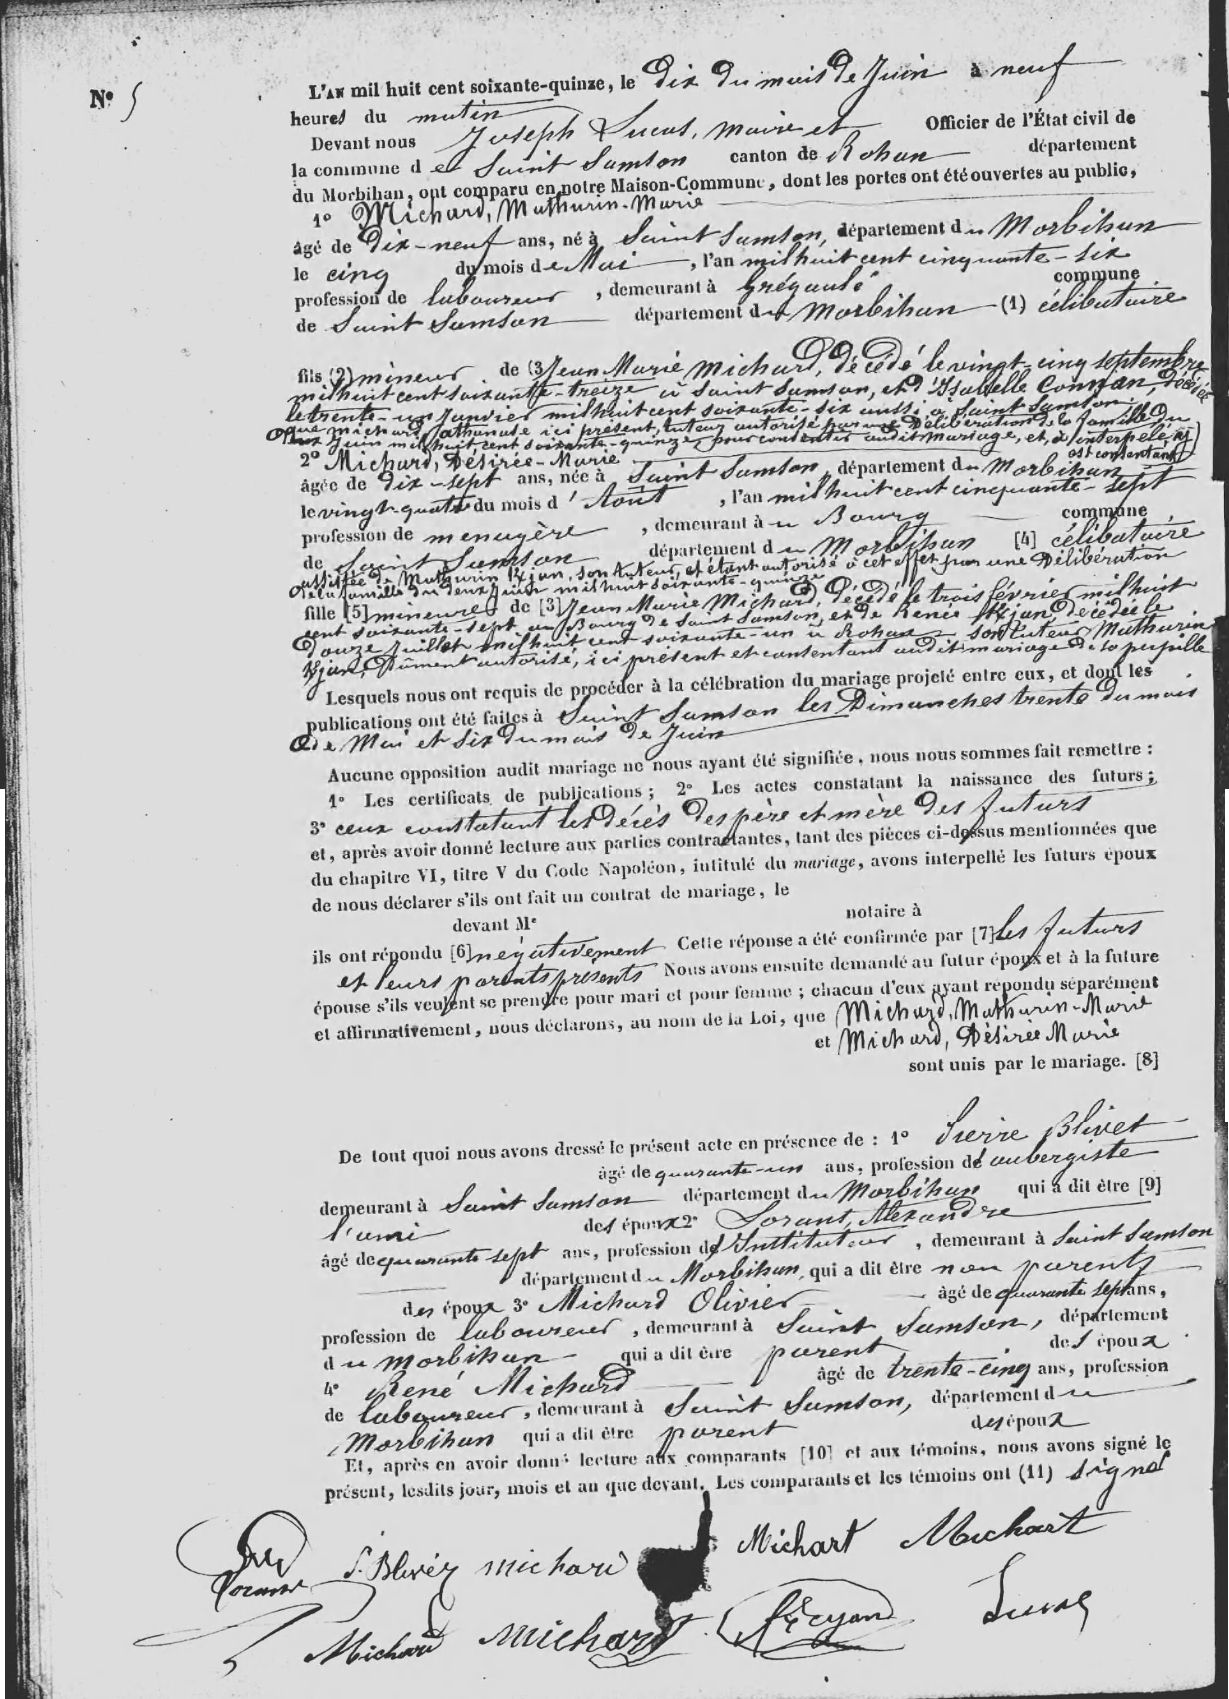 N° 5
L'AN mil huit cent soixante-quinze, le dix du mois de Juin à neuf
heures du matin
Devant nous Joseph Lucas, maire et Officier de l'État civil de
la commune de Saint Samson canton de Rohan département
du Morbihan, ont comparu en notre Maison-Commune, dont les portes ont été ouvertes au public,
1° Michard, Mathurin-Marie
âgé de dix-neuf ans, né à Saint Samson, département du Morbihan
le cinq du mois de Mai, l'an mil huit cent cinquante-six
profession de laboureur, demeurant à Grégaulé commune
de Saint Samson département du Morbihan (1) célibataire
fils (2) mineur de (3 Jean Marie Michard, décédé le vingt-cinq septembre
mil huit cent soixante-treize à Saint Samson, et d'Isabelle Connan décédée
le trente-un Janvier mil huit cent soixante-six aussi à Saint Samson
que Michard, Athanase ici présent, tuteur autorisé par une Délibération de la famille du
deux Juin mil huit cent soixante-quinze, pour consentir audit mariage, et, à interpelé
est consentant
2° Michard, Désirée-Marie
âgée de dix-sept ans, née à Saint Samson, département du Morbihan
le vingt-quatre du mois d'Août, l'an mil huit cent cinquante-sept
profession de menagère, demeurant à u Bourg commune
de Saint Samson département du Morbihan [4] célibataire
assistée de Mathurin Kjan, son tuteur, et étant autorisé à cet effet par une Délibération
de la famille du deux Juin mil huit soixante-quinze
fille [5] mineure de [3] Jean Marie Michard, décédé le trois février mil huit
cent soixante-sept au Bourg de Saint Samson, et de Renée Kjan, décédée le
douze Juillet mil huit cent soixante-un à Rohan son tuteur Mathurin
Kjan, dûment autorisé, ici présent et consentant audit mariage de sa pupille
Lesquels nous ont requis de procéder à la célébration du mariage projeté entre eux, et dont les
publications ont été faites à Saint Samson les Dimanches trente du mois
de Mai et six du mois de Juin
Aucune opposition audit mariage ne nous ayant été signifiée, nous nous sommes fait remettre :
1° Les certificats de publications ; 2° Les actes constatant la naissance des futurs ;
3° ceux constatant les décès des père et mère des futurs
et, après avoir donné lecture aux parties contractantes, tant des pièces ci-dessus mentionnées que
du chapitre VI, titre V du Code Napoléon, intitulé du mariage, avons interpellé les futurs époux
de nous déclarer s'ils ont fait un contrat de mariage, le
devant Me notaire à
ils ont répondu [6] négativement Cette réponse a été confirmée par [7] les futurs
et leurs parents présents Nous avons ensuite demandé au futur époux et à la future
épouse s'ils veulent se prendre pour mari et pour femme ; chacun d'eux ayant répondu séparément
et affirmativement, nous déclarons, au nom de la Loi, que Michard, Mathurin-Marie
et Michard, Désirée Marie
sont unis par le mariage. [8]
De tout quoi nous avons dressé le présent acte en présence de : 1° Pierre Blivet
âgé de quarante-un ans, profession d'aubergiste
demeurant à Saint Samson département du Morbihan qui a dit être [9]
l'ami des époux 2° Lorant, Alexandre
âgé de quarante sept ans, profession d'Instituteur, demeurant à Saint Samson
département du Morbihan, qui a dit être non parent
des époux 3° Michard Olivier âgé de quarante sept ans,
profession de laboureur, demeurant à Saint Samson, département
du Morbihan qui a dit être parent des époux
4° René Michard âgé de trente-cinq ans, profession
de laboureur, demeurant à Saint Samson, département du
Morbihan qui a dit être parent des époux
Et, après en avoir donné lecture aux comparants [10] et aux témoins, nous avons signé le
présent, lesdits jour, mois et an que devant. Les comparants et les témoins ont (11) signé
Lorant P. Blivet Michard Michart Michart
Michard Michard Lucas